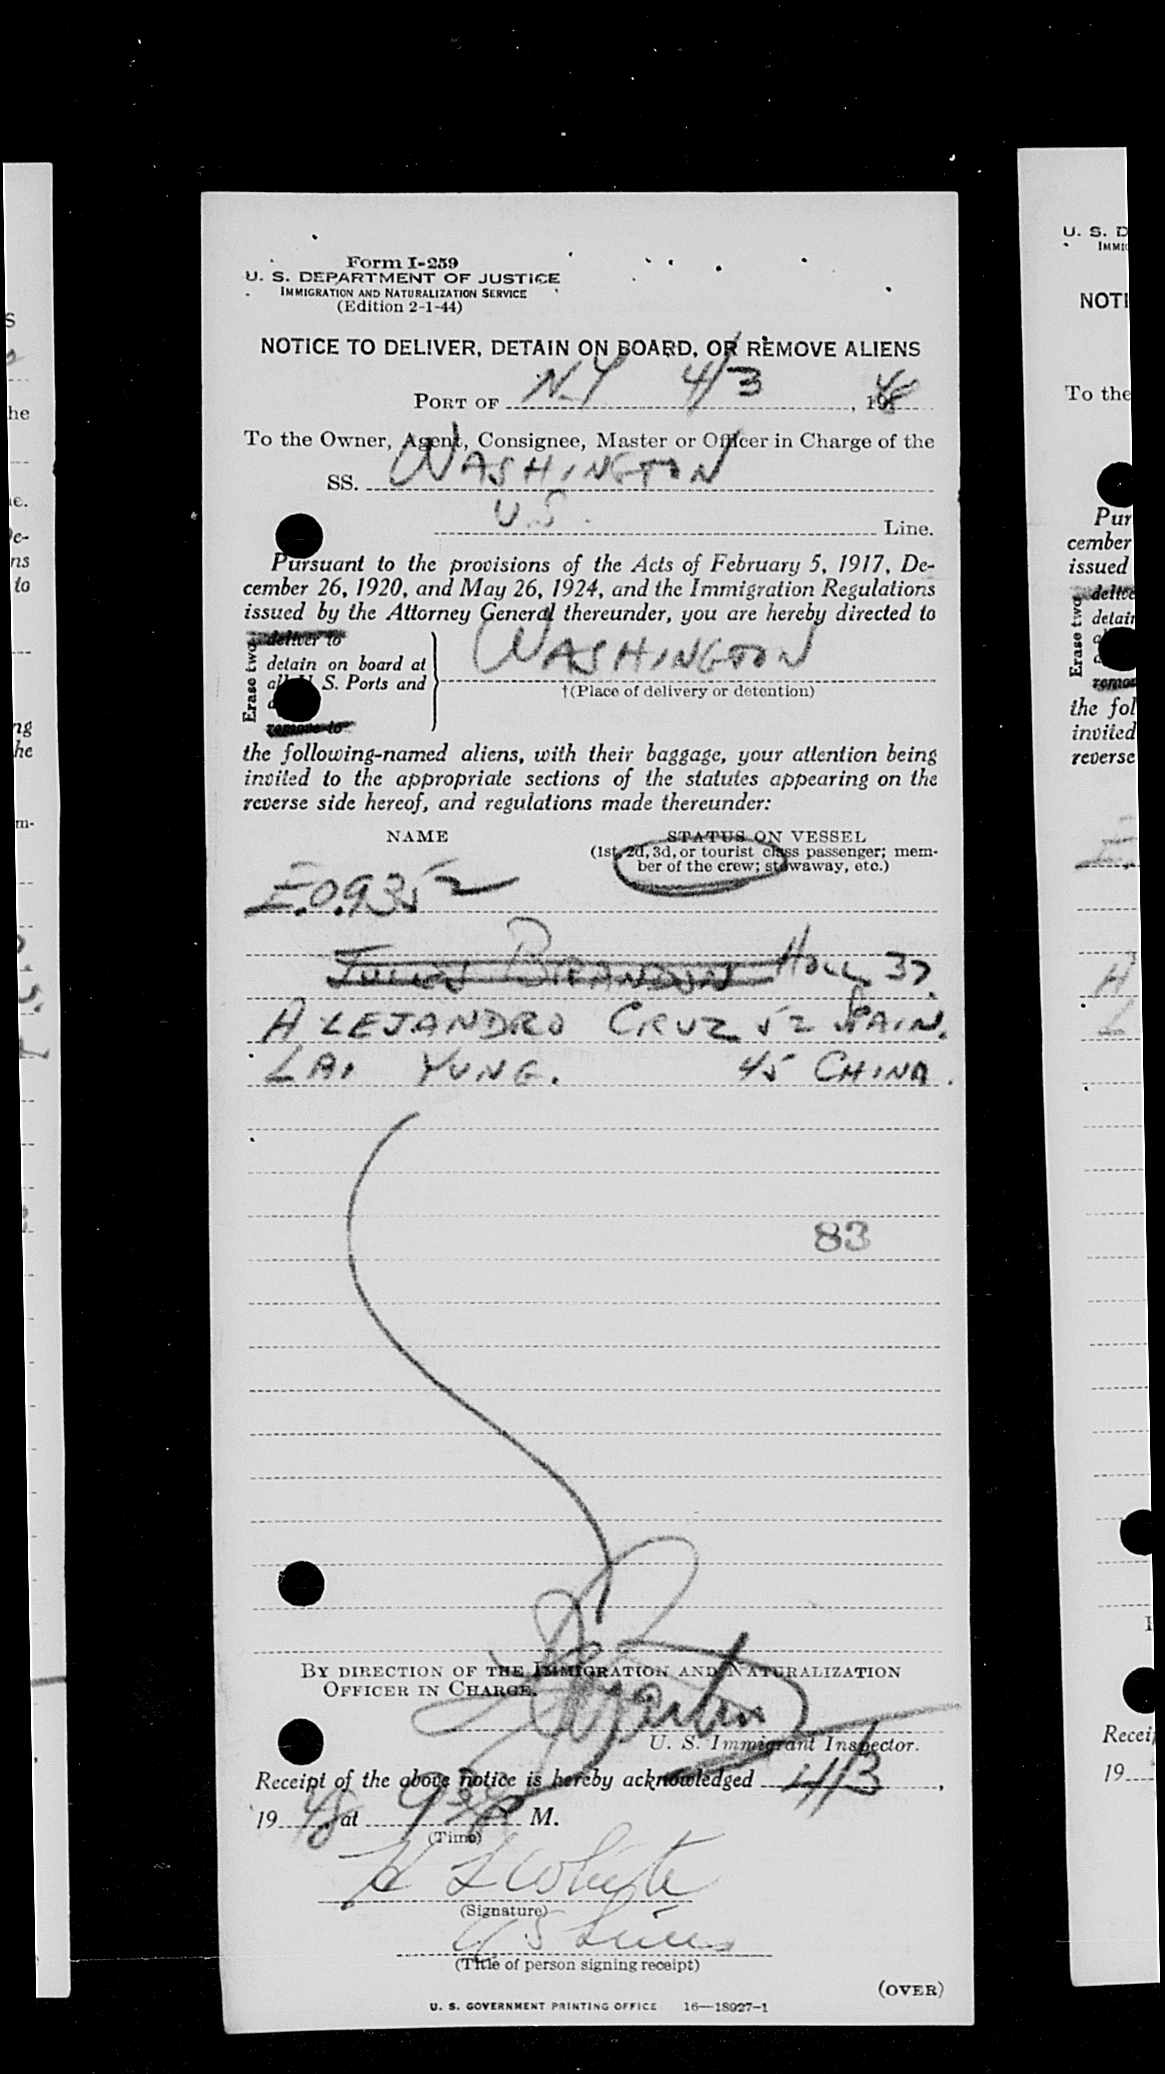 Form I-259
U. S. DEPARTMENT OF JUSTICE
IMMIGRATION AND NATURALIZATION SERVICE
(Edition 2-1-44)
NOTICE TO DELIVER, DETAIN ON BOARD, OR REMOVE ALIENS
PORT OF N.Y 4/3, 1948
To the Owner, Agent, Consignee, Master or Officer in Charge of the
SS. WASHINGTON
U.S. Line.
Pursuant to the provisions of the Acts of February 5, 1917, De-
cember 26, 1920, and May 26, 1924, and the Immigration Regulations
issued by the Attorney General thereunder, you are hereby directed to
Erase two
deliver to
detain on board at
all U. S. Ports and
remove to
WASHINGTON
†(Place of delivery or detention)
the following-named aliens, with their baggage, your attention being
invited to the appropriate sections of the statutes appearing on the
reverse side hereof, and regulations made thereunder:
NAME STATUS ON VESSEL
(1st, 2d, 3d, or tourist class passenger; mem-
ber of the crew; stowaway, etc.)
E.O.9352
HOLL 37.
ALEJANDRO CRUZ 52 SPAIN.
LAI YUNG. 45 CHINA.
83
BY DIRECTION OF THE IMMIGRATION AND NATURALIZATION
OFFICER IN CHARGE.
Martin
U. S. Immigrant Inspector.
Receipt of the above notice is hereby acknowledged 4/3,
1948 at 930 P M.
(Time)
H L White
(Signature)
U S Lines
(Title of person signing receipt)
(OVER)
U. S. GOVERNMENT PRINTING OFFICE 16—18927-1